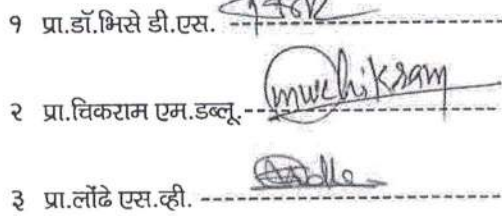 १ प्रा.डॉ.भिसे डी.एस. ------------------
२ प्रा.चिकराम एम.डब्लू.--mwchikram----
३ प्रा.लोंढे एस.व्ही. ------------------